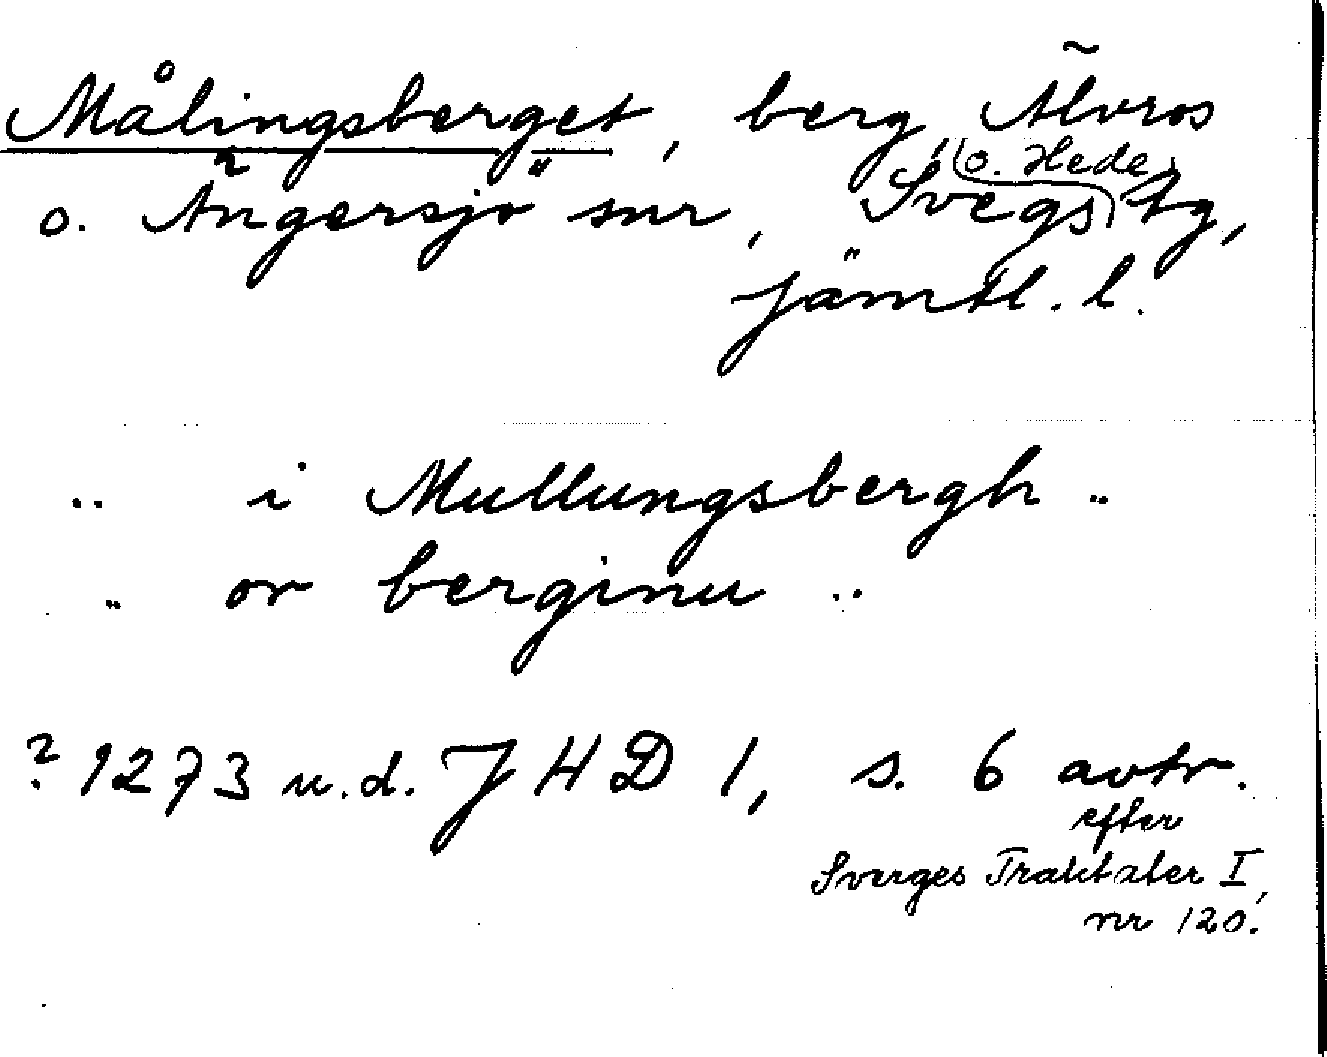 Målingsberget, berg, Älvros
o. Ängersjö snr, Svegs (o. Hede) tg,
Jämtl. l.
.. i Mullungsbergh ..
.. or berginu ..
? 1273 u.d. JHD 1, s. 6 avtr.
efter
Sverges Traktater I,
nr 120.